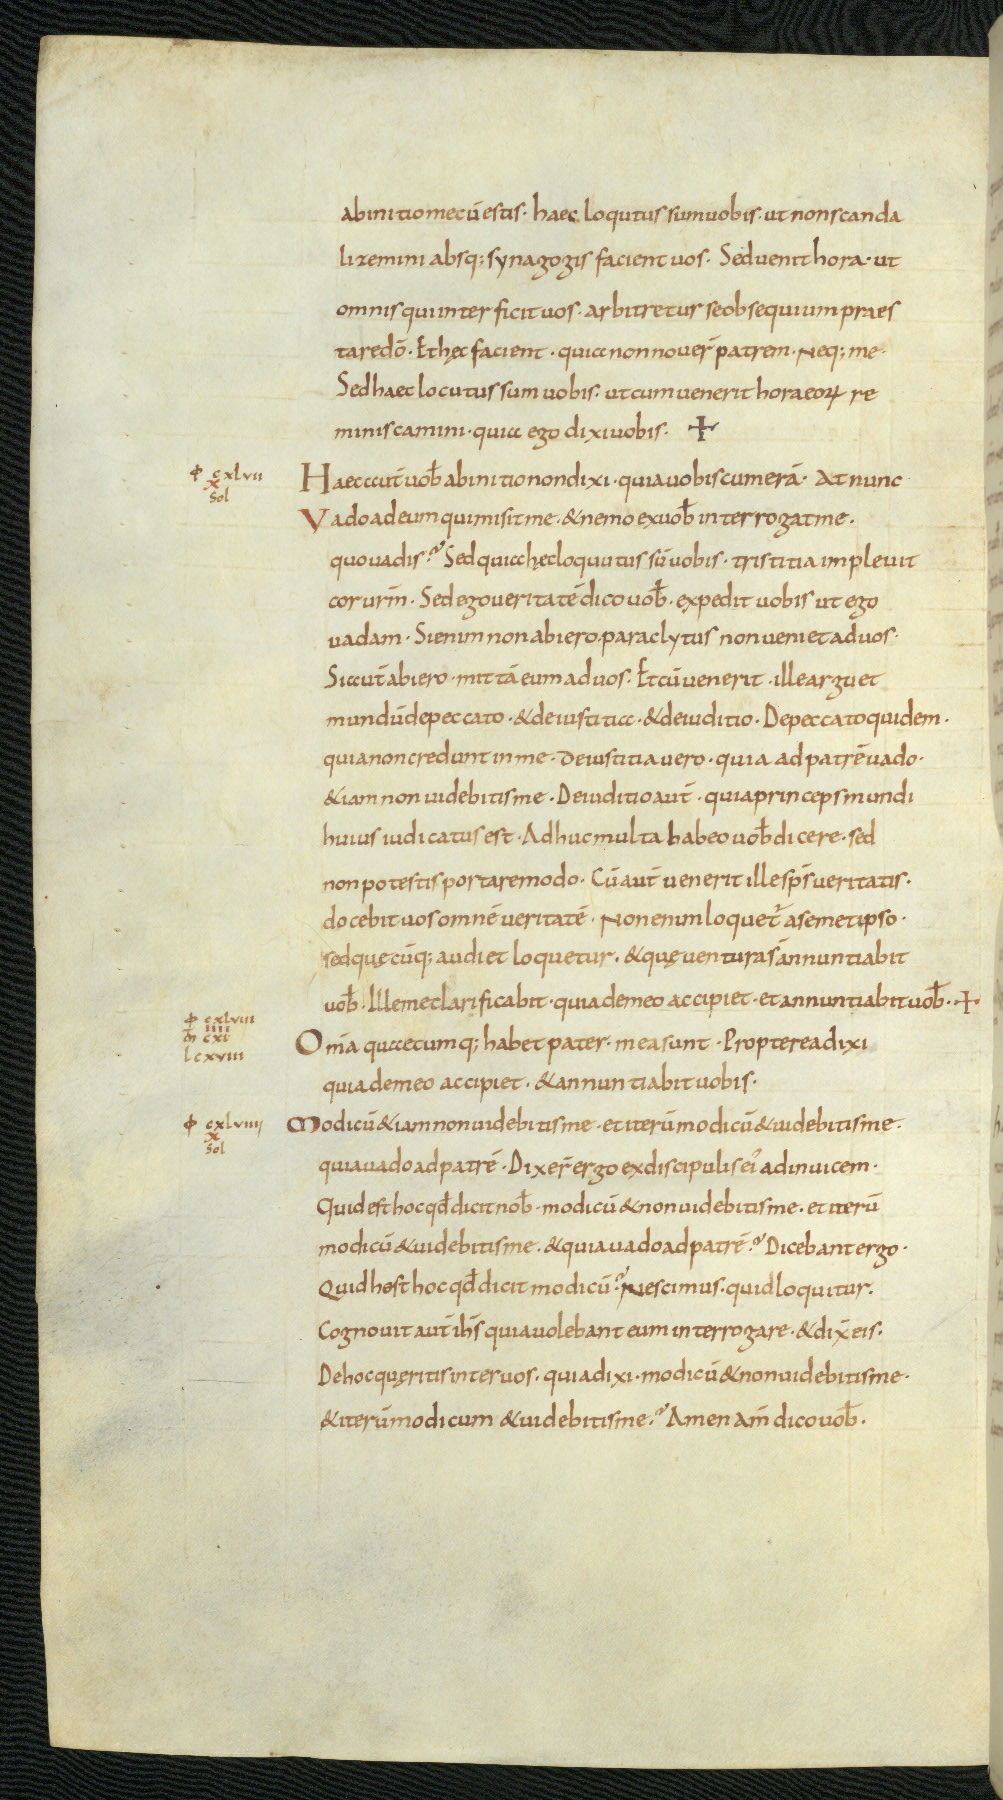 abinitio mecū estis · haec loqutus sum uobis · ut non scanda
lizemini absq; synagogis facient uos · Sed uenit hora · ut
omnis qui interficit uos · arbitretur se obsequium praes
tare dō · Et hęc facient · quia non nouer̄ patrem · Neq; me ·
Sed haec locutus sum uobis · ut cum uenerit hora eoꝝ re
miniscamini · quia ego dixi uobis · ✝
ф cxlvii
x
sol
Haec aut̄ uob̄ ab initio non dixi · quia uobiscum erā · At nunc
Vado ad eum qui misit me · & nemo ex uob̄ interrogat me ·
quo uadis ? Sed quia hęc loquutus sū uobis · tristitia impleuit
cor urm̄ · Sed ego ueritatē dico uob̄ · expedit uobis ut ego
uadam · Si enim non abiero · paraclytus non ueniet ad uos ·
Si aut̄ abiero · mittā eum ad uos · Et cū uenerit · ille arguet
mundū de peccato · & de iustitia · & de iuditio · De peccato quidem ·
quia non credunt in me · De iustitia uero · quia ad patrē uado ·
& iam non uidebitis me · De iuditio aut̄ · quia princeps mundi
huius iudicatus est · Adhuc multa habeo uob̄ dicere · sed
non potestis portare modo · Cū aut̄ uenerit ille sp̄s ueritatis ·
docebit uos omnē ueritatē · Non enim loquet̄ a semetipso ·
sed quęcūq; audiet loquetur · & quę uentura s̄ annuntiabit
uob̄ · Ille me clarificabit · quia de meo accipiet · et annuntiabit uob̄ · ✝
ф cxlviii
iiii
m̄ cxi
l cxviii
Om̄a quaecumq; habet pater · mea sunt · Propterea dixi
quia de meo accipiet · & annuntiabit uobis ·
ф cxlviiij
x
sol
Modicū & iam non uidebitis me · et iterū modicū & uidebitis me ·
quia uado ad patrē · Dixer̄ ergo ex discipulis ei᾽ ad inuicem ·
Quid est hoc qd̄ dicit nob̄ · modicū & non uidebitis me · et iterū
modicū & uidebitis me · & quia uado ad patrē ? Dicebant ergo ·
Quid hest hoc qd̄ dicit modicū ? Nescimus · quid loquitur ·
Cognouit aut̄ ih̄s quia uolebant eum interrogare · & dix̄ eis ·
De hoc quęritis inter uos · quia dixi · modicū & non uidebitis me ·
& iterū modicum & uidebitis me ? Amen am̄ dico uob̄ ·